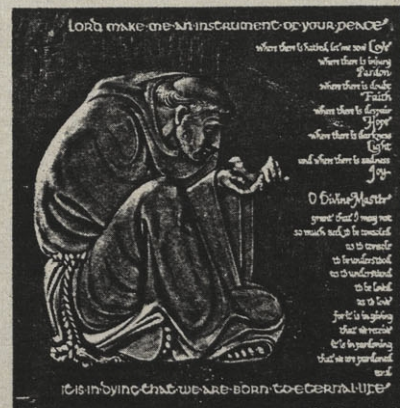 LORD, MAKE ME AN INSTRUMENT OF YOUR PEACE
where there is hatred, let me sow Love
where there is injury
Pardon
where there is doubt
Faith
where there is despair
Hope
where there is darkness
Light
and where there is sadness
Joy
O Divine Master
grant that I may not
so much seek to be consoled
as to console
to be understood
as to understand
to be loved
as to love
for it is in giving
that we receive
it is in pardoning
that we are pardoned
and
IT IS IN DYING THAT WE ARE BORN TO ETERNAL LIFE